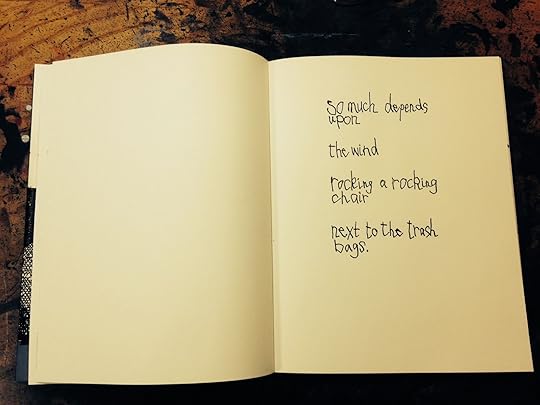 so much depends
upon
the wind
rocking a rocking
chair
next to the trash
bags.